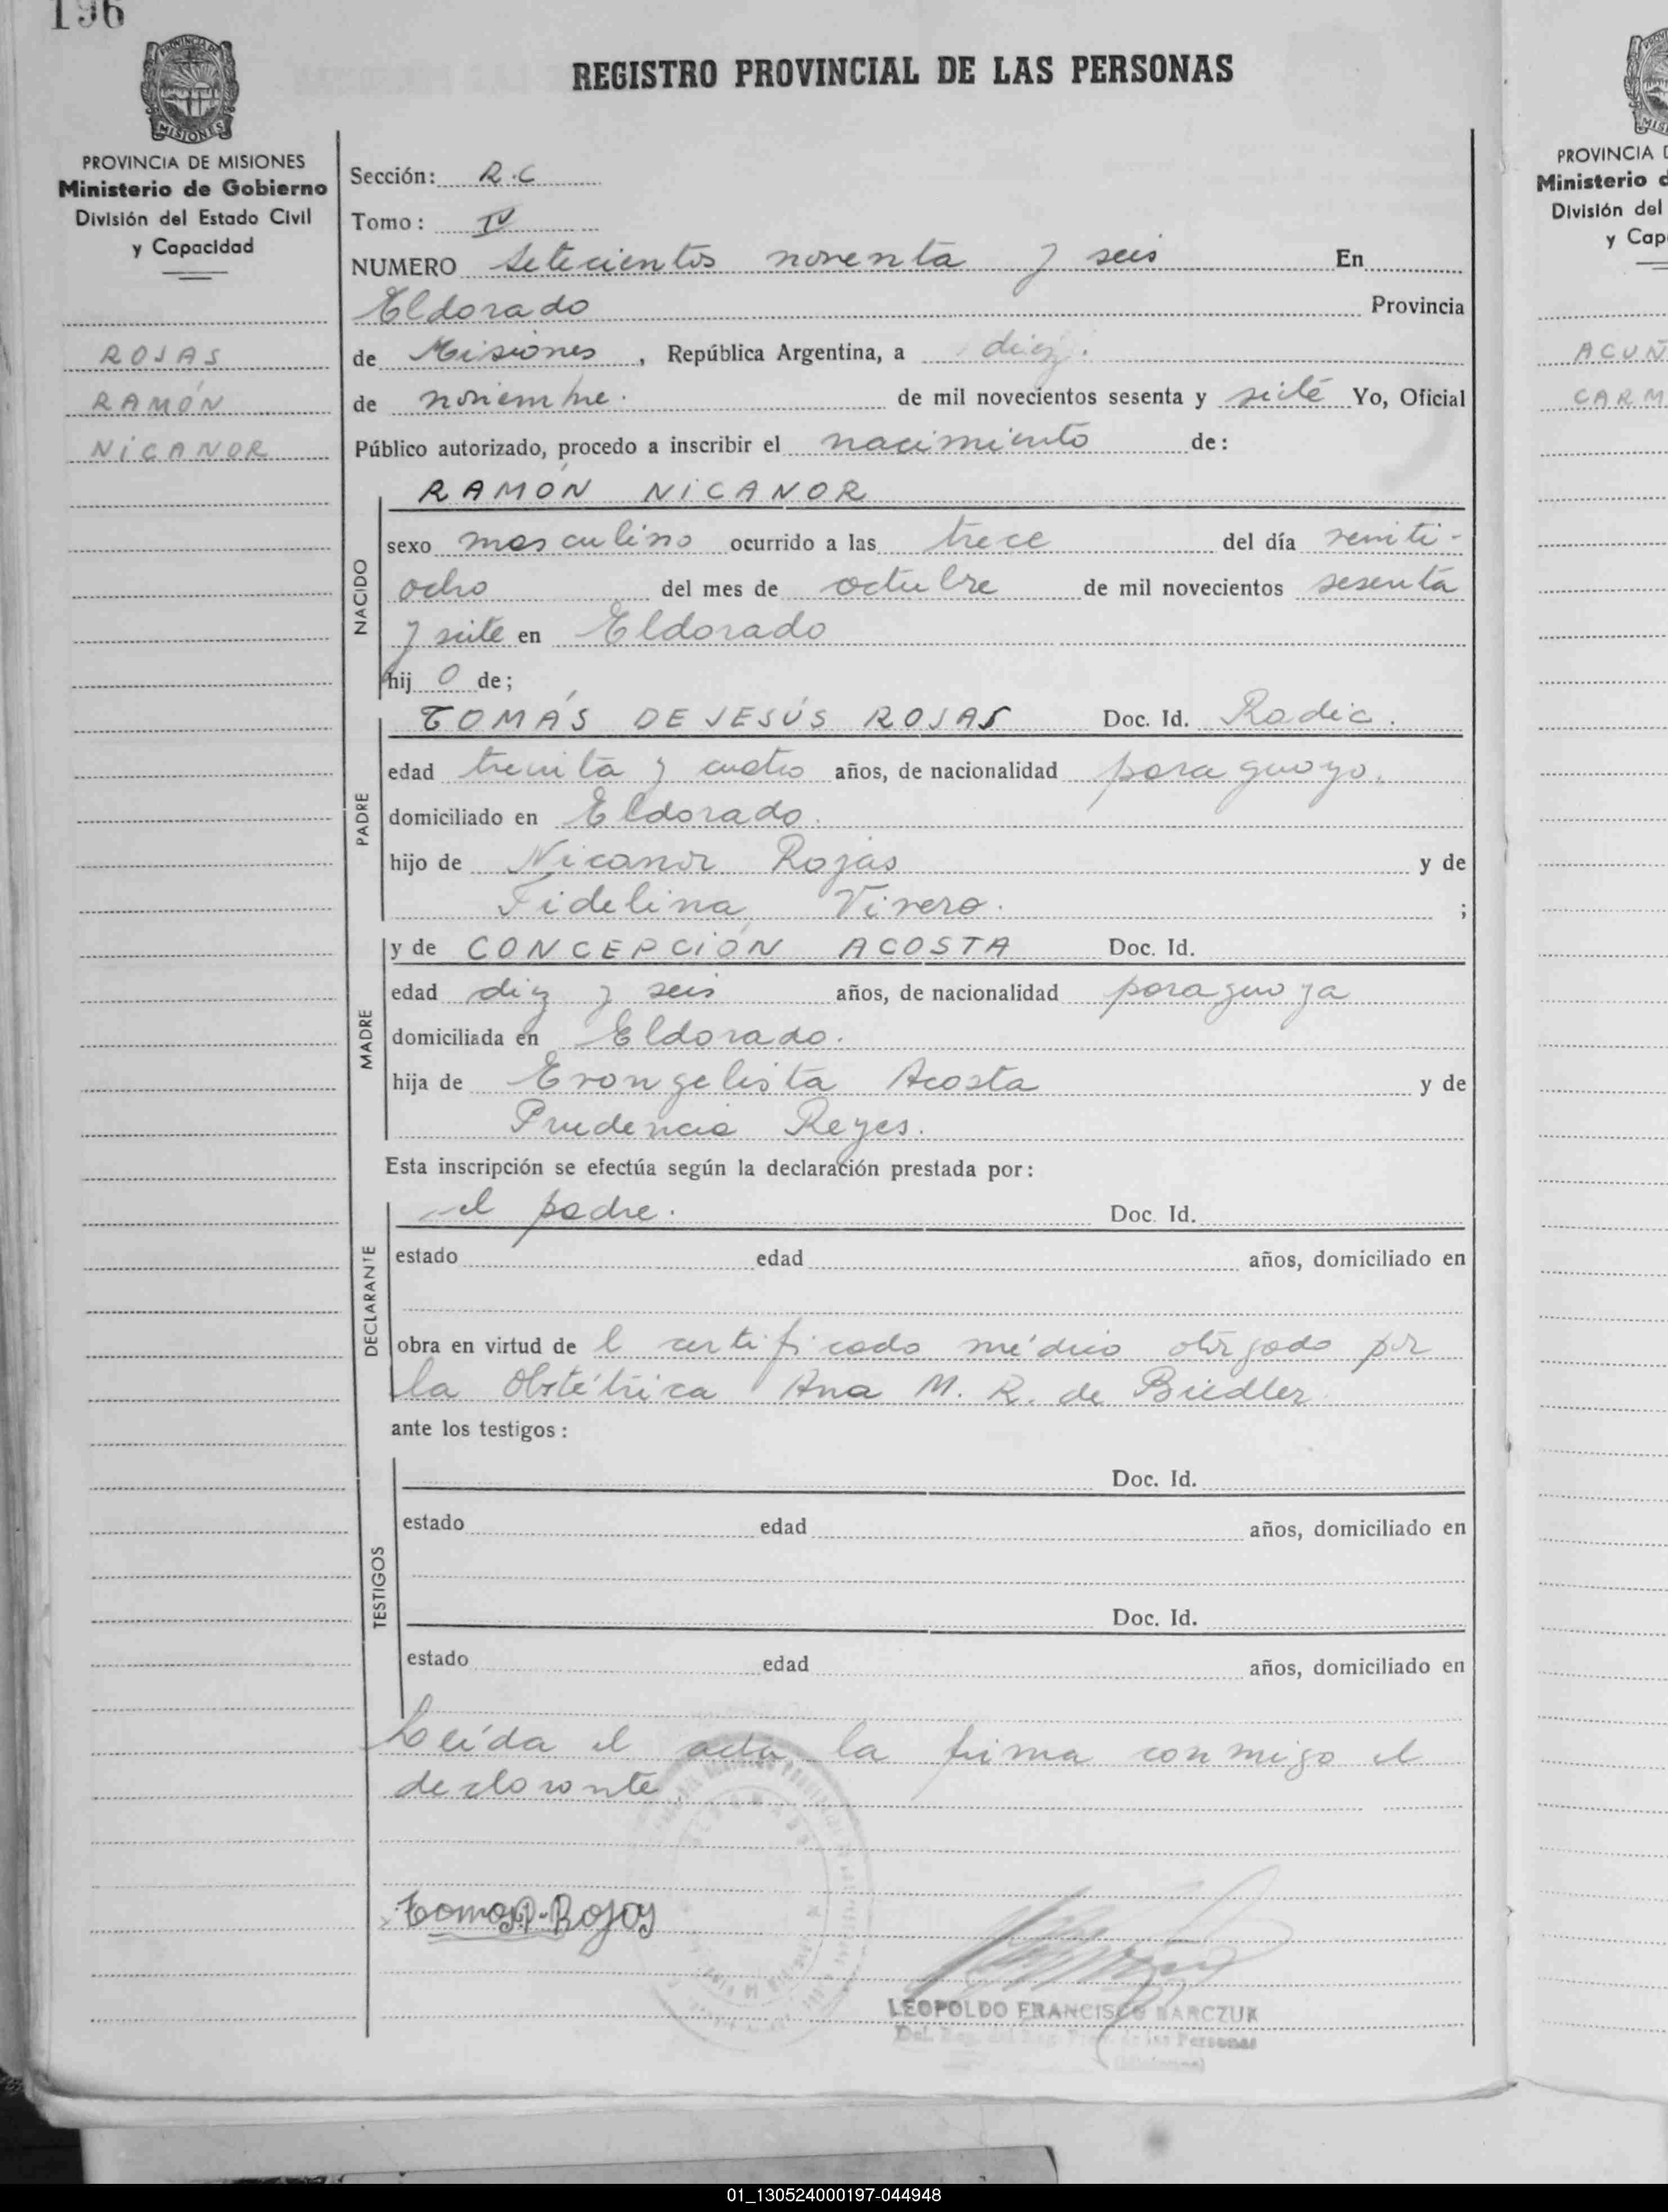 196
REGISTRO PROVINCIAL DE LAS PERSONAS
PROVINCIA DE MISIONES
MISIONES
PROVINCIA DE MISIONES
Ministerio de Gobierno
División del Estado Civil
y Capacidad
ROJAS
RAMÓN
NICANOR
Sección: R.C
Tomo: IV
NUMERO setecientos noventa y seis En
Eldorado Provincia
de Misiones, República Argentina, a diez.
de noviembre. de mil novecientos sesenta y siete Yo, Oficial
Público autorizado, procedo a inscribir el nacimiento de:
RAMÓN NICANOR
NACIDO
sexo masculino ocurrido a las trece del día veinti-
ocho del mes de octubre de mil novecientos sesenta
y siete en Eldorado
hijo de;
PADRE
TOMÁS DE JESÚS ROJAS Doc. Id. Radic.
edad treinta y cuatro años, de nacionalidad paraguayo.
domiciliado en Eldorado.
hijo de Nicanor Rojas y de
Fidelina Vivero. ;
MADRE
y de CONCEPCIÓN ACOSTA Doc. Id.
edad diez y seis años, de nacionalidad paraguaya
domiciliada en Eldorado.
hija de Evangelista Acosta y de
Prudencia Reyes.
Esta inscripción se efectúa según la declaración prestada por:
DECLARANTE
el padre. Doc. Id.
estado edad años, domiciliado en
obra en virtud de l certificado médico otorgado por
la Obstétrica Ana M. R. de Biedler
ante los testigos:
TESTIGOS
Doc. Id.
estado edad años, domiciliado en
Doc. Id.
estado edad años, domiciliado en
Leída el acta, la firma conmigo el
declarante.
Rojas
LEOPOLDO FRANCISCO BARCZUK
de las Personas
(Misiones)
PROVINCIA D
Ministerio d
División del
y Cap
ACUÑ
CARM
01_130524000197-044948